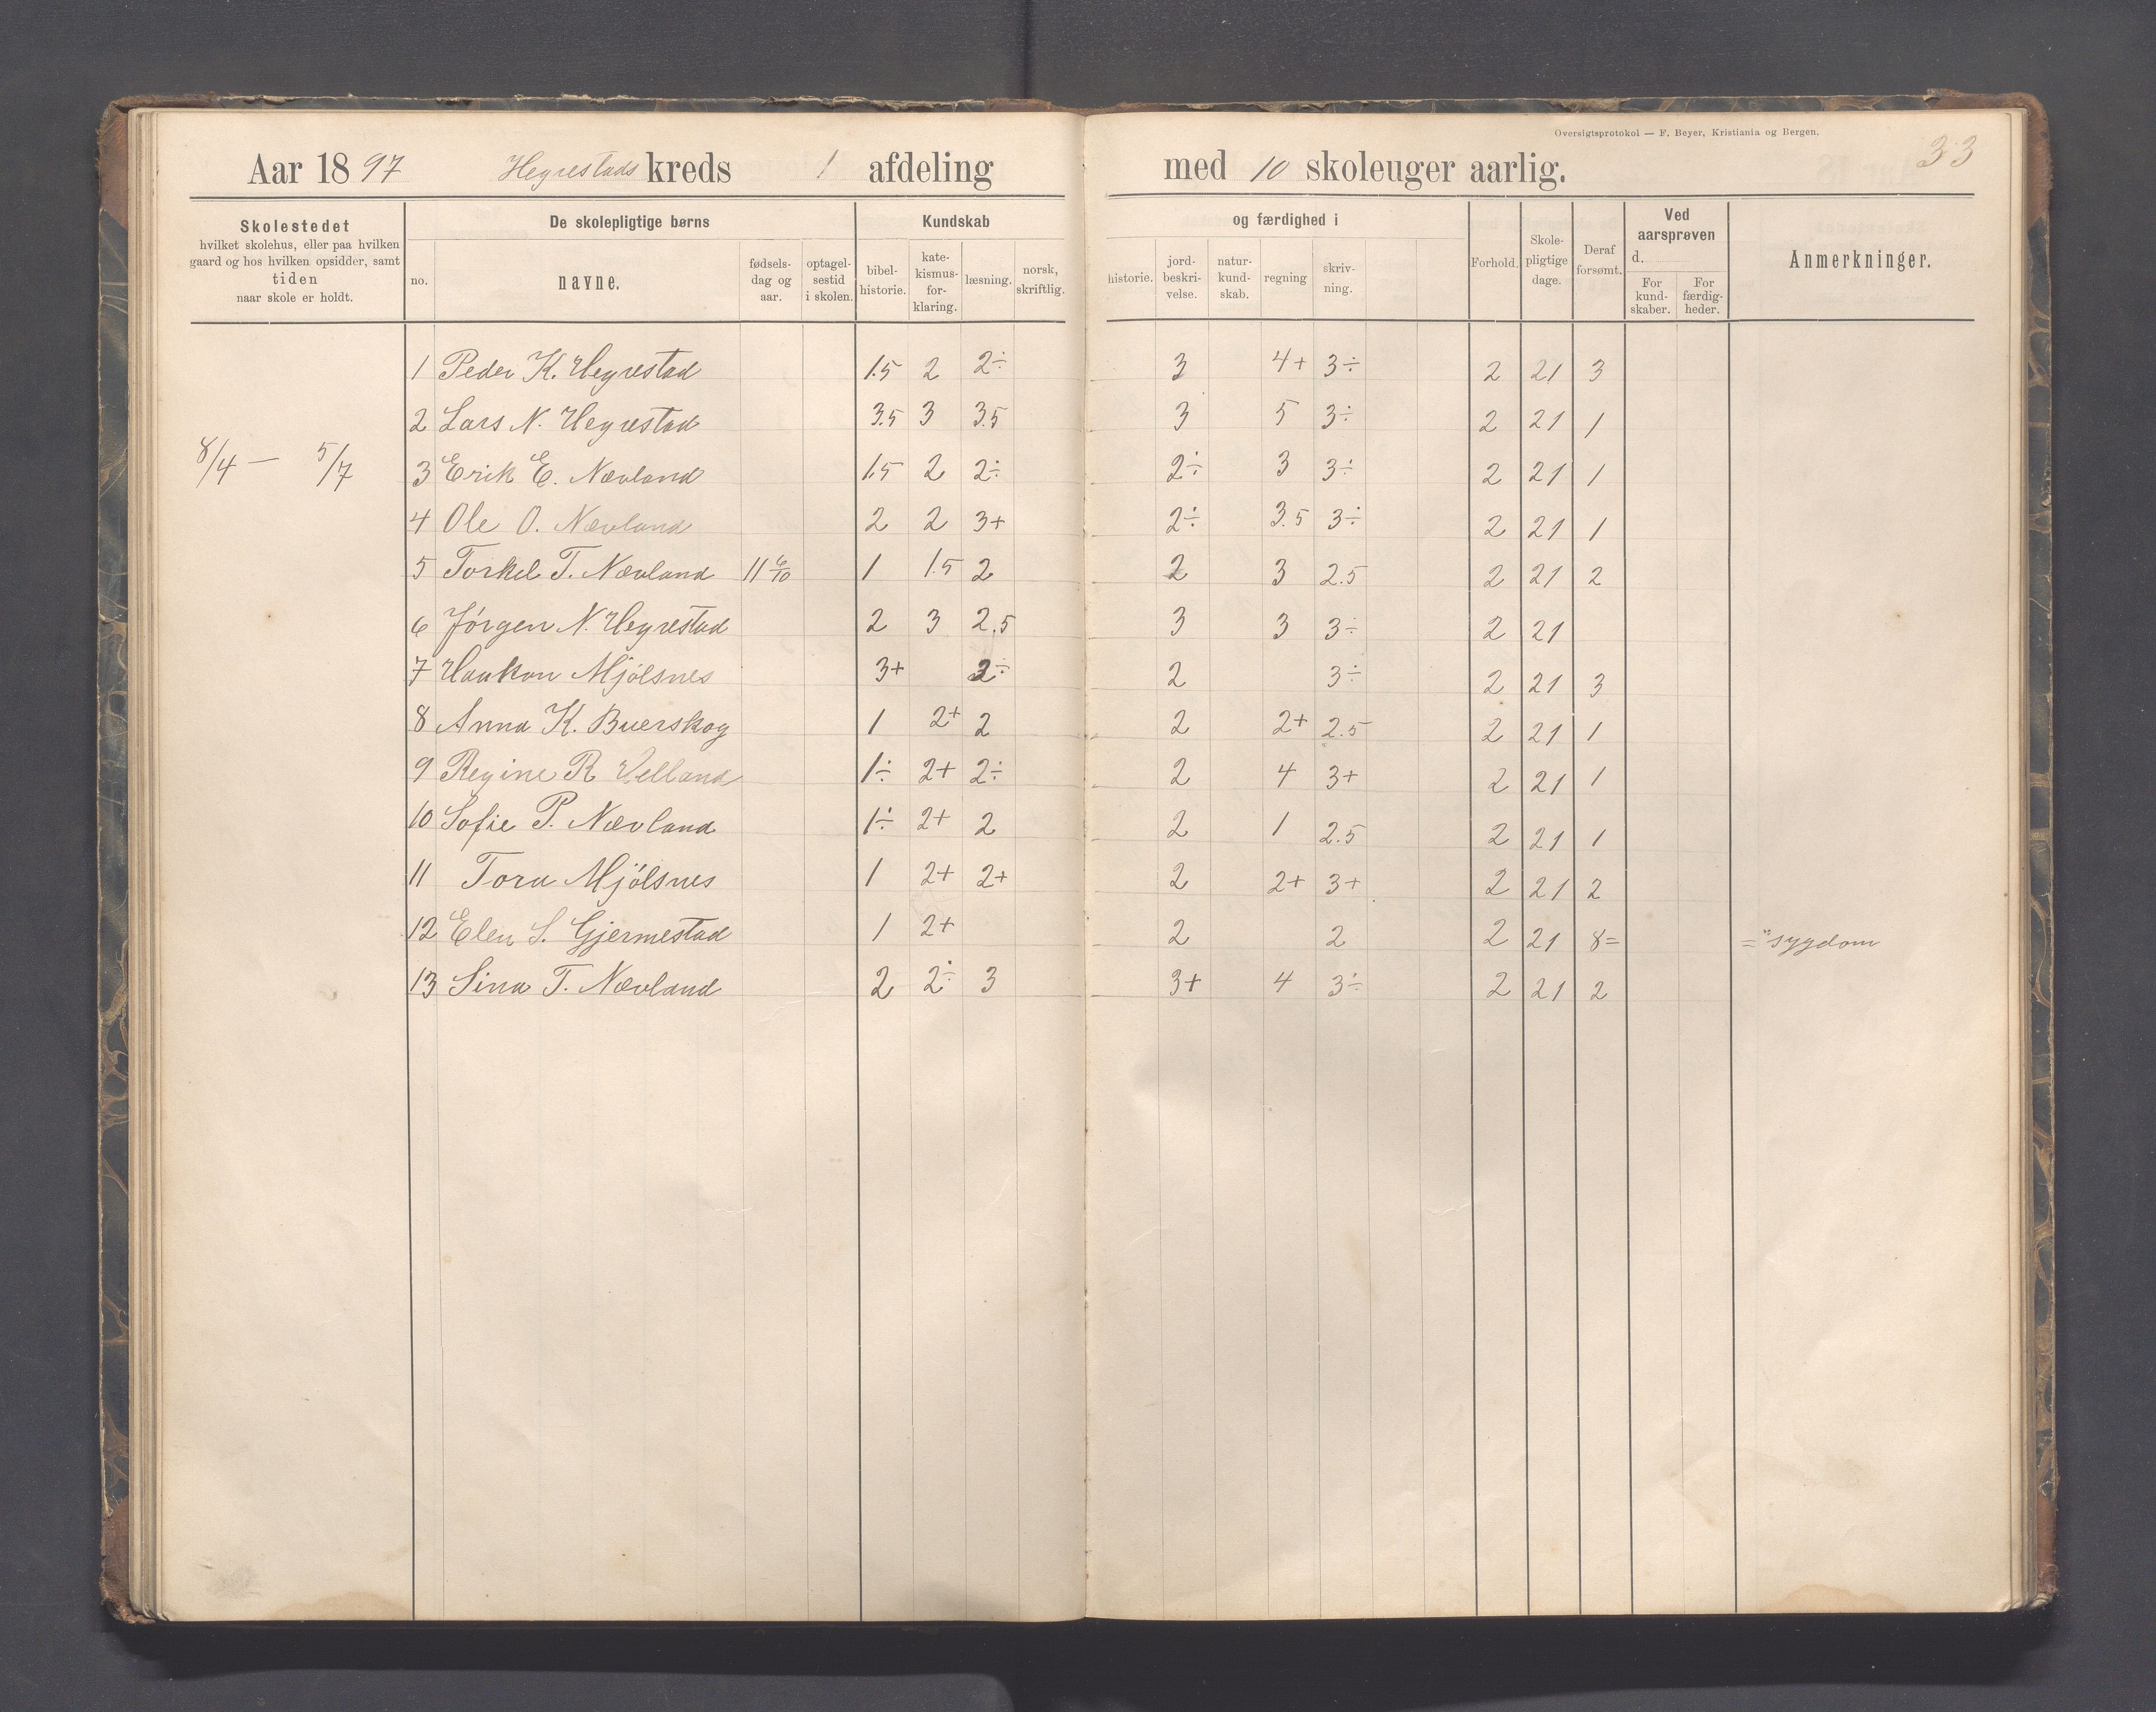 Oversigtsprotokol — F. Beyer, Kristiania og Bergen.
33
Aar 1897 Hegrestads kreds 1 afdeling med 10 skoleuger aarlig.
Skolestedet
hvilket skolehus, eller paa hvilken
gaard og hos hvilken opsidder, samt
tiden
naar skole er holdt.
De skolepligtige børns
no.
navne.
fødsels-
dag og
aar.
optagel-
sestid
i skolen.
Kundskab
bibel-
historie.
kate-
kismus-
for-
klaring.
læsning.
norsk,
skriftlig.
og færdighed i
historie.
jord-
beskri-
velse.
natur-
kund-
skab.
regning
skriv-
ning.
Forhold.
Skole-
pligtige
dage.
Deraf
forsømt.
Ved
aarsprøven
d.
For
kund-
skaber.
For
færdig-
heder.
Anmerkninger.
8/4 — 5/7
1 Peder K. Hegrestad 1.5 2 2÷ 3 4+ 3÷ 2 21 3
2 Lars N. Hegrestad 3.5 3 3.5 3 5 3÷ 2 21 1
3 Erik E. Nævland 1.5 2 2÷ 2÷ 3 3÷ 2 21 1
4 Ole O. Nævland 2 2 3+ 2÷ 3.5 3÷ 2 21 1
5 Torkel T. Nævland 11 6/10 1 1.5 2 2 3 2.5 2 21 2
6 Jørgen N. Hegrestad 2 3 2.5 3 3 3÷ 2 21
7 Haakon Mjølsnes 3+ 2÷ 2 3÷ 2 21 3
8 Anna K. Buerskog 1 2+ 2 2 2+ 2.5 2 21 1
9 Regine R Velland 1÷ 2+ 2÷ 2 4 3+ 2 21 1
10 Sofie P. Nævland 1÷ 2+ 2 2 1 2.5 2 21 1
11 Tora Mjølsnes 1 2+ 2+ 2 2+ 3+ 2 21 2
12 Elen S. Gjermestad 1 2+ 2 2 2 21 8= = "sygdom
13 Sina T. Nævland 2 2÷ 3 3+ 4 3÷ 2 21 2